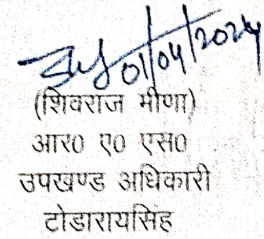 01/04/2024
(शिवराज मीणा)
आर0 ए0 एस0
उपखण्ड अधिकारी
टोडारायसिंह